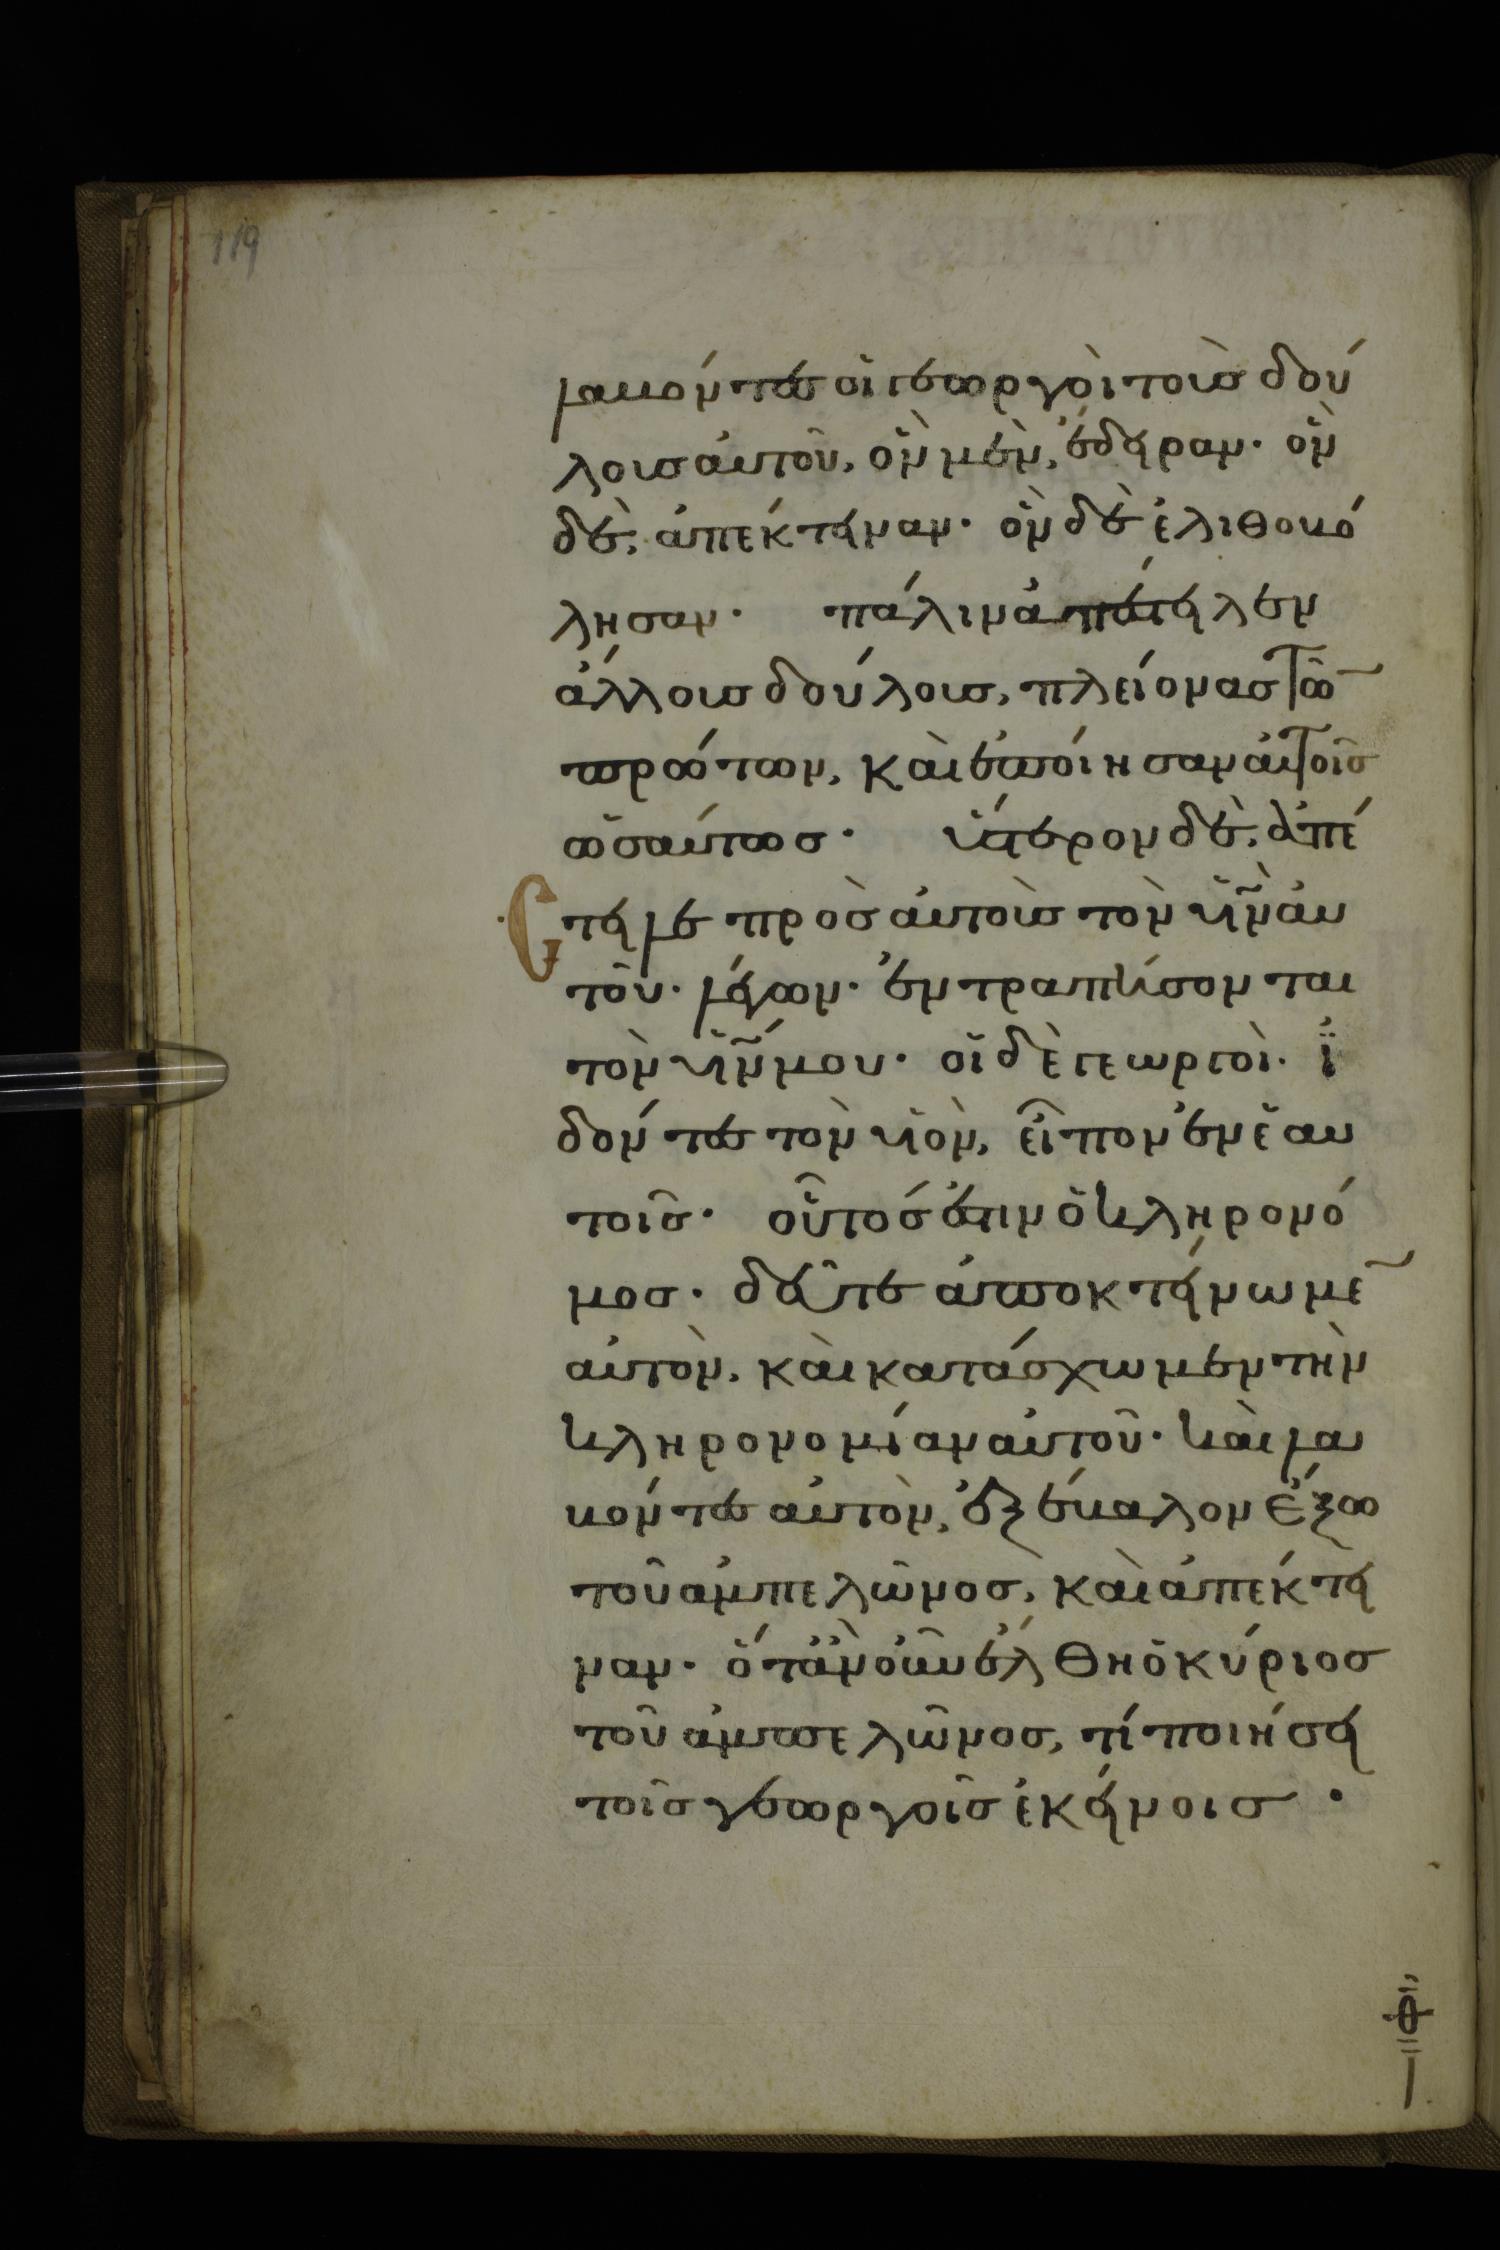 119
λαβόντες οἱ γεωργοὶ τοὺς δού
λους αὐτοῦ, ὃν μὲν, ἔδειραν· ὃν
δὲ, ἀπέκτειναν· ὃν δὲ ἐλιθοβό
λησαν· πάλιν ἀπέστειλεν
ἄλλους δούλους, πλείονας τῶ
πρώτων, καὶ ἐποίησαν αὐτοῖς
ὡσαύτως· ὕστερον δὲ, ἀπέ
στειλε πρὸς αὐτοὺς τὸν υἱὸν αὐ
τοῦ· λέγων· ἐντραπήσονται
τὸν υἱόν μου· οἱ δὲ γεωργοὶ· ἰ
δόντες τὸν υἱὸν, εἶπον ἐν ἑαυ
τοῖς· οὗτός ἐστιν ὁ κληρονό
μος· δεῦτε ἀποκτείνωμε
αὐτὸν, καὶ κατάσχωμεν τὴν
κληρονομίαν αὐτοῦ· καὶ λα
βόντες αὐτὸν, ἐξέβαλον ἔξω
τοῦ ἀμπελῶνος, καὶ ἀπέκτει
ναν· ὅταν οὖν ἔλθη ὁ κύριος
τοῦ ἀμπελῶνος, τί ποιήσει
τοῖς γεωργοῖς ἐκείνοις·